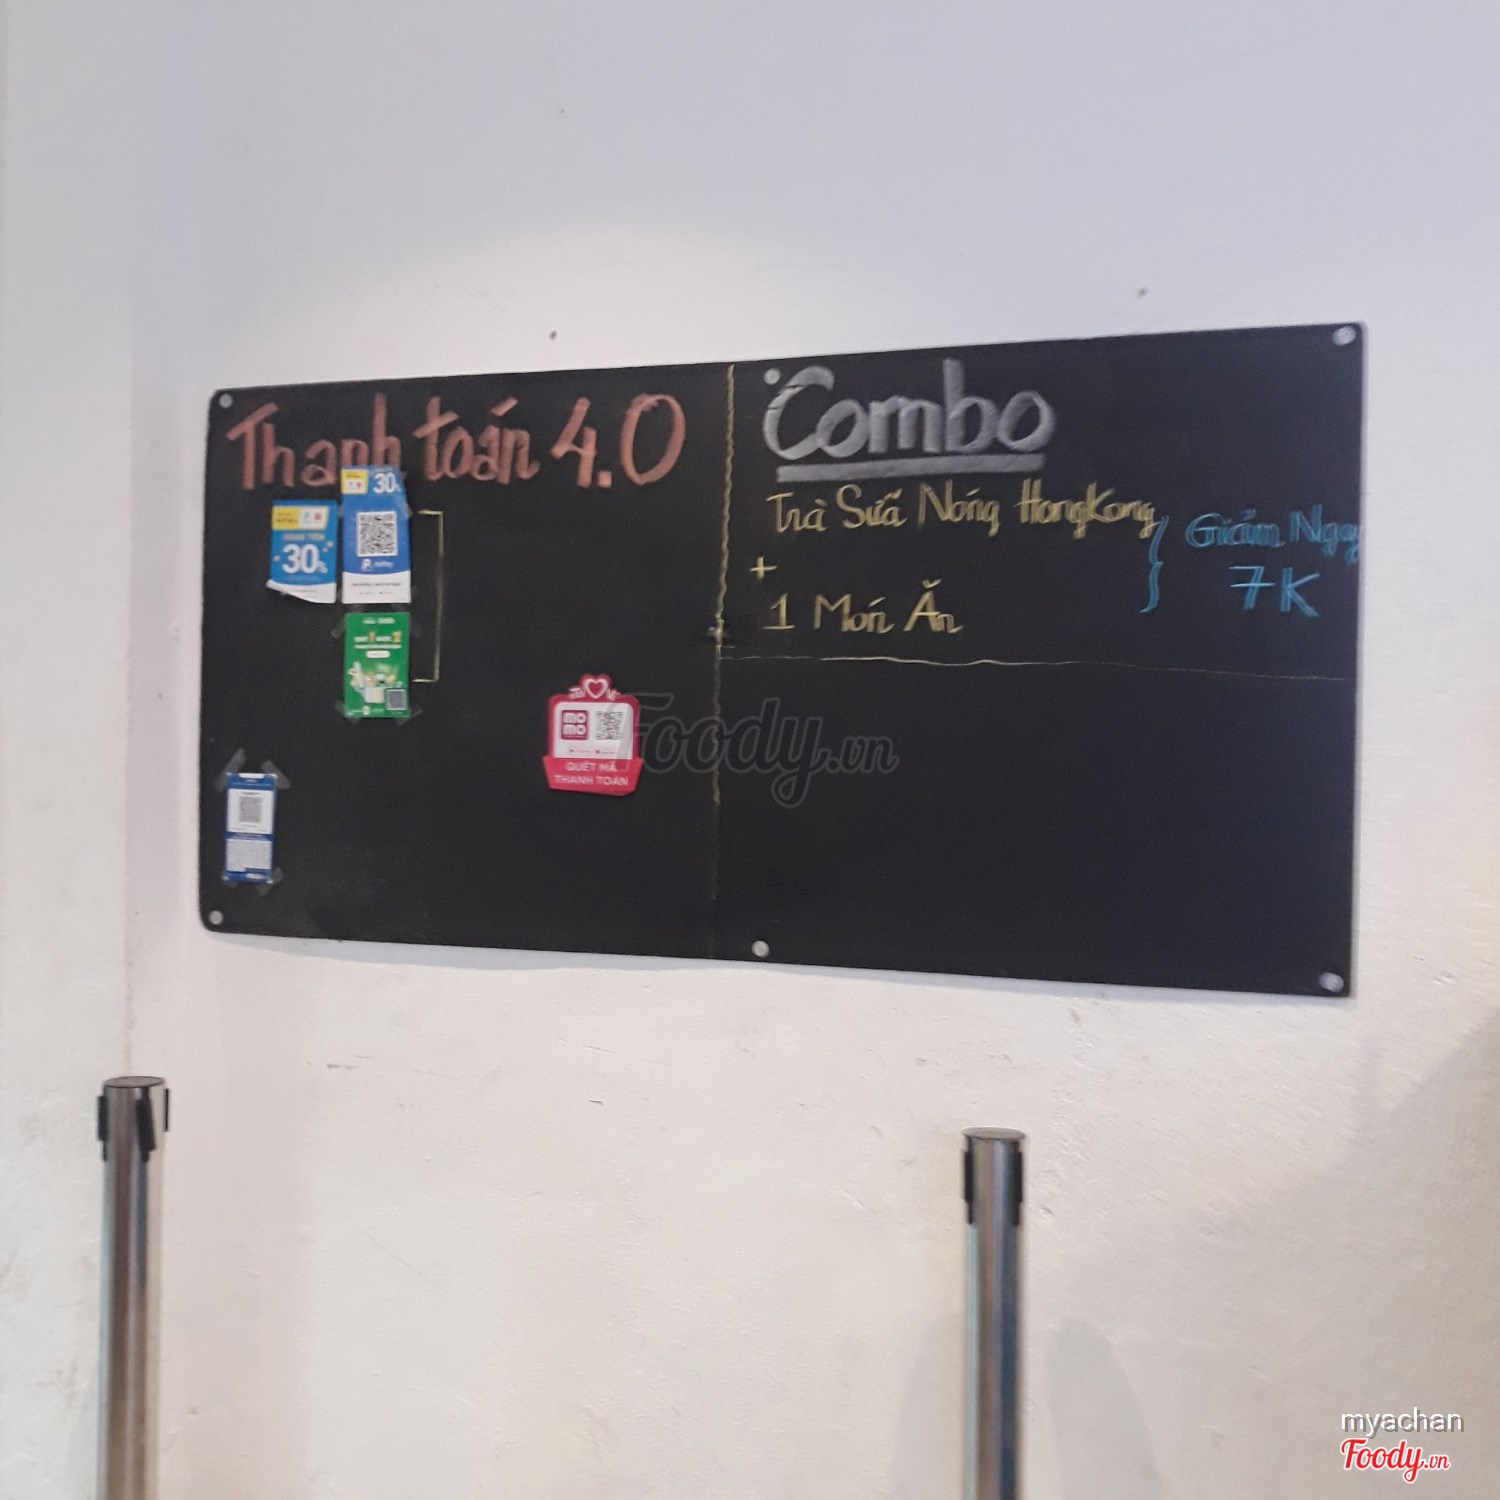 Thanh toán 4.0
30%
30%
MOMO
QUÉT MÃ
THANH TOÁN
Combo
Trà Sữa Nóng HongKong
+
1 Món Ăn
Giảm Ngay
7K
Foody.vn
myachan
Foody.vn